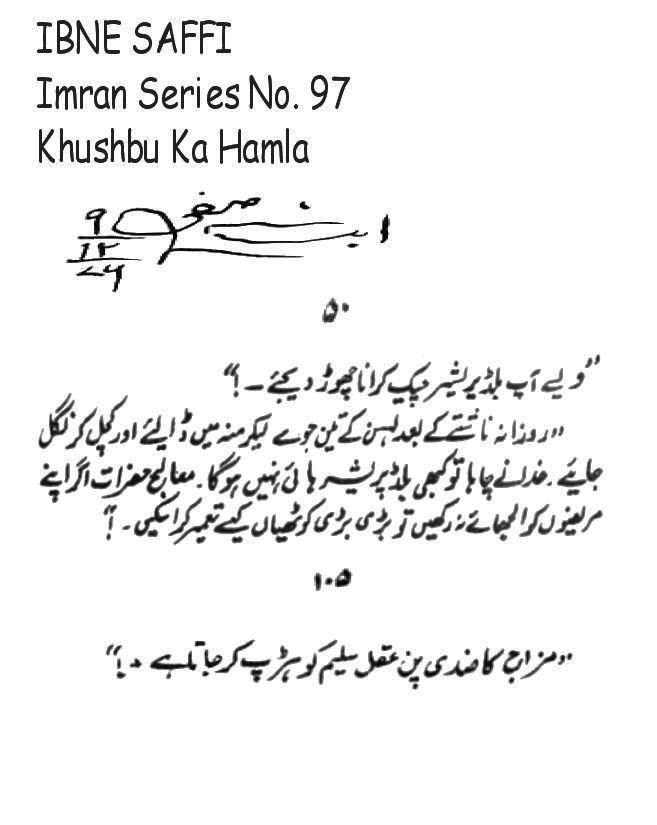 IBNE SAFFI
Imran Series No. 97
Khushbu Ka Hamla
ابن صفی
۹
۱۲
۷۶
۵۰
”ویسے آپ بلڈ پریشر چیک کرانا چھوڑ دیجئے۔!“
”روزانہ ناشتے کے بعد لہسن کے تین جوے لیکر منہ میں ڈالئے اور کچل کر نگل
جائیے۔ خدا نے چاہا تو کبھی بلڈ پریشر ہائی نہیں ہوگا۔ معالج حضرات اگر اپنے
مریضوں کو الجھائے نہ رکھیں تو بڑی بڑی کوٹھیاں کیسے تعمیر کرا سکیں۔؟“
۱۰۵
”مزاج کا ضدی پن عقل سلیم کو ہڑپ کر جاتا ہے۔!“